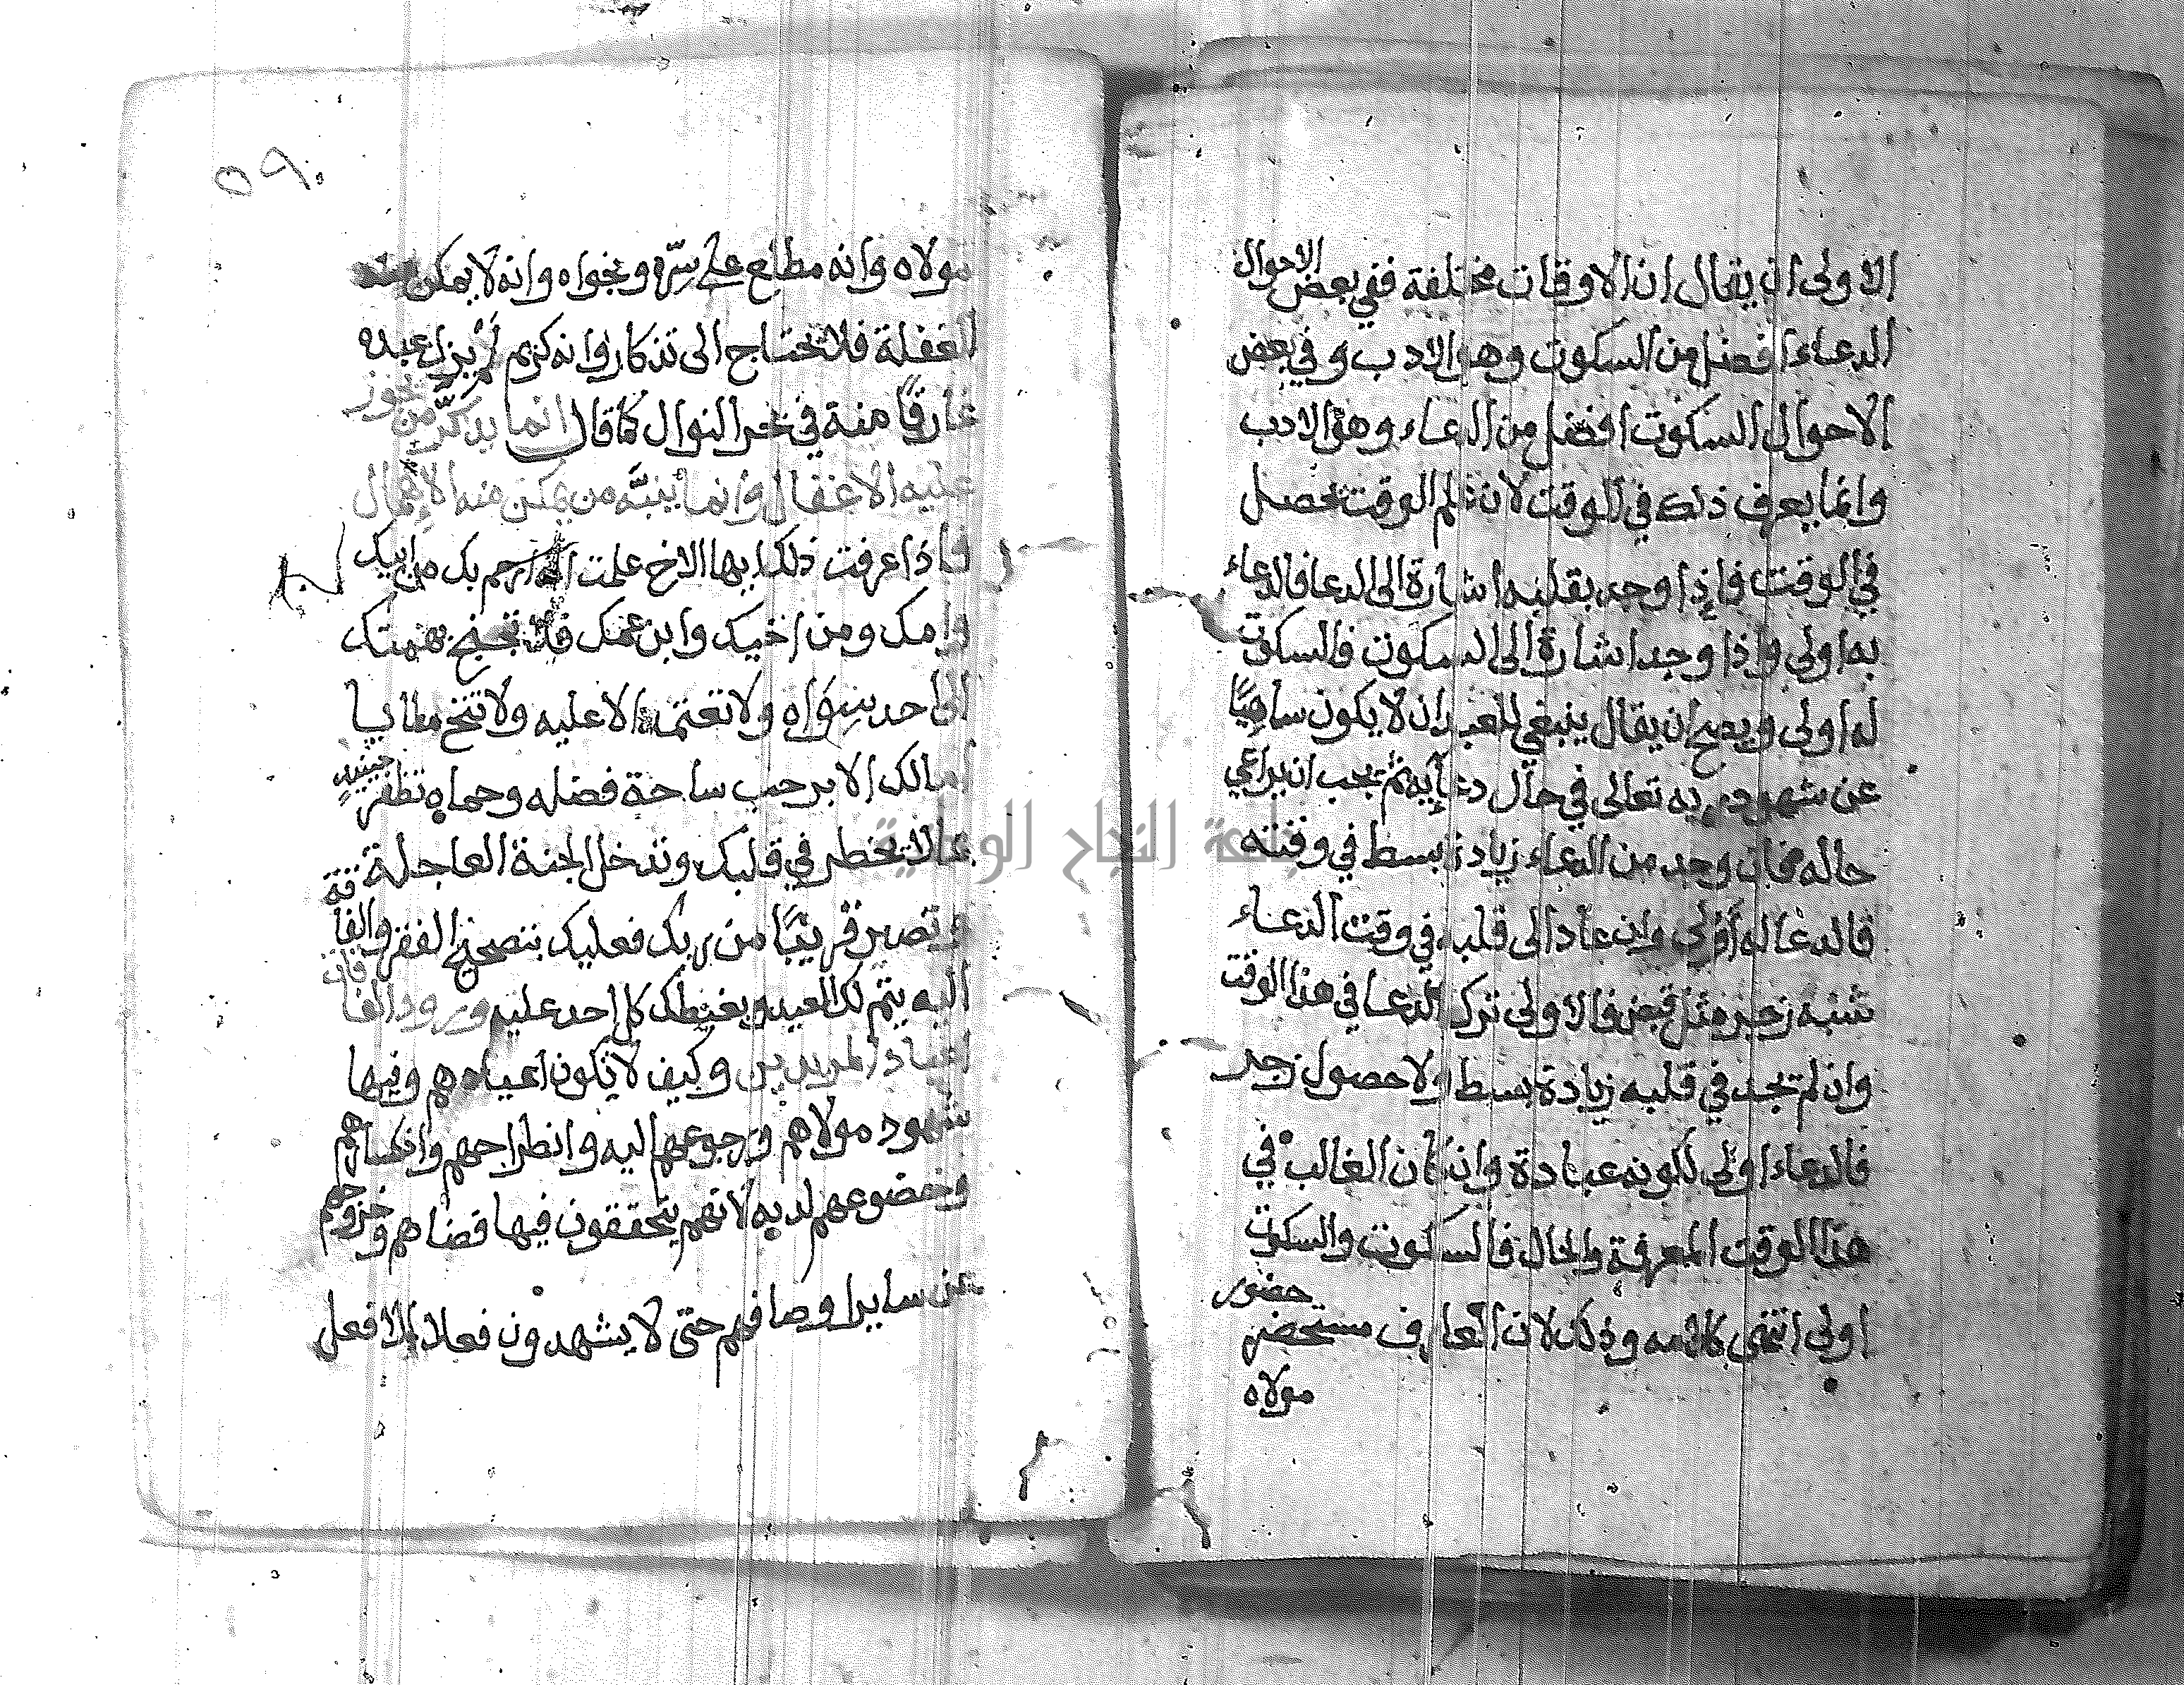 الاولى ان يقال ان الاوقات مختلفة ففي بعض الاحوال
الدعاء افضل من السكوت وهو الادب وفي بعض
الاحوال السكوت افضل من الدعاء وهو الادب
وانما يعرف ذلك في الوقت لان علم الوقت يحصل
في الوقت فاذا وجد بقلبه اشارة الى الدعا فالدعاء
به اولى واذا وجد اشارة الى السكوت فالسكوت
له اولى ويصح ان يقال ينبغي للعبد ان لا يكون ساهيًا
عن شهود ربه تعالى في حال دعآيه ثم يجب ان يراعي
حاله فان وجد من الدعاء زيادة بسط في وقته
فالدعا له اولى وان عاد الى قلبه في وقت الدعاء
شبه زجر ومثل قبض فالاولى ترك الدعا في هذا الوقت
وان لم يجد في قلبه زيادة بسط ولا حصول زجر
فالدعاء اولى لكونه عبادة وان كان الغالب في
هذا الوقت المعرفة والحال فالسكوت والسكوت
اولى انتهى كلامه وذلك لان العارف مستحضر حضور
مولاه
٥٩
مولاه وانه مطلع على سرّه ونجواه وانه لا يمكن
الغفلة فلا يحتاج الى تذكار وانه كريم لم يزل عبده
غارقًا منه في بحر النوال كما قال انما يذكّر من يجوز
عليه الاغفال وانما ينبّه من يمكن منه الاهمال
فاذا عرفت ذلك ايها الاخ علمت انه ارحم بك من ابيك
وامك ومن اخيك وابن عمك فلا تجنح بهمتك
الى احد سواه ولا تعتمد الا عليه ولا تنخ مطايا
امالك الا برحب ساحة فضله وحماه تظفر حينيذٍ
بما لا يخطر في قلبك وتدخل الجنة العاجلة
وتصير قريبًا من ربك فعليك بتصحيح الفقر والفاقة
اليه يتم لك العيد ويغبطك كل احد عليه ورود الفاقات
اعياد المريدين وكيف لا تكون اعيادهم وفيها
شهود مولاهم ورجوعهم اليه وانطراحهم وانكسارهم
وخضوعهم لديه لانهم يتحققون فيها فناهم وخروجهم
عن ساير اوصافهم حتى لا يشهدون فعلا الا فعل
جامعة النجاح الوطنية